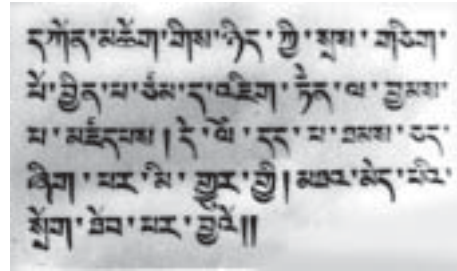 དཀོན་མཆོག་གིས་ཉིད་ཀྱི་སྲས་གཅིག་
པོ་བྱིན་པ་ཙམ་དུ་འཇིག་རྟེན་ལ་བྱམས་
པ་མཛདཔས། དེ་ལ་དད་པ་ཐམས་ཅད་
ཞིག་པར་མི་གྱུར་གྱི། མཐའ་མེད་པའི་
སྲོག་ཐོབ་པར་བྱའོ༎